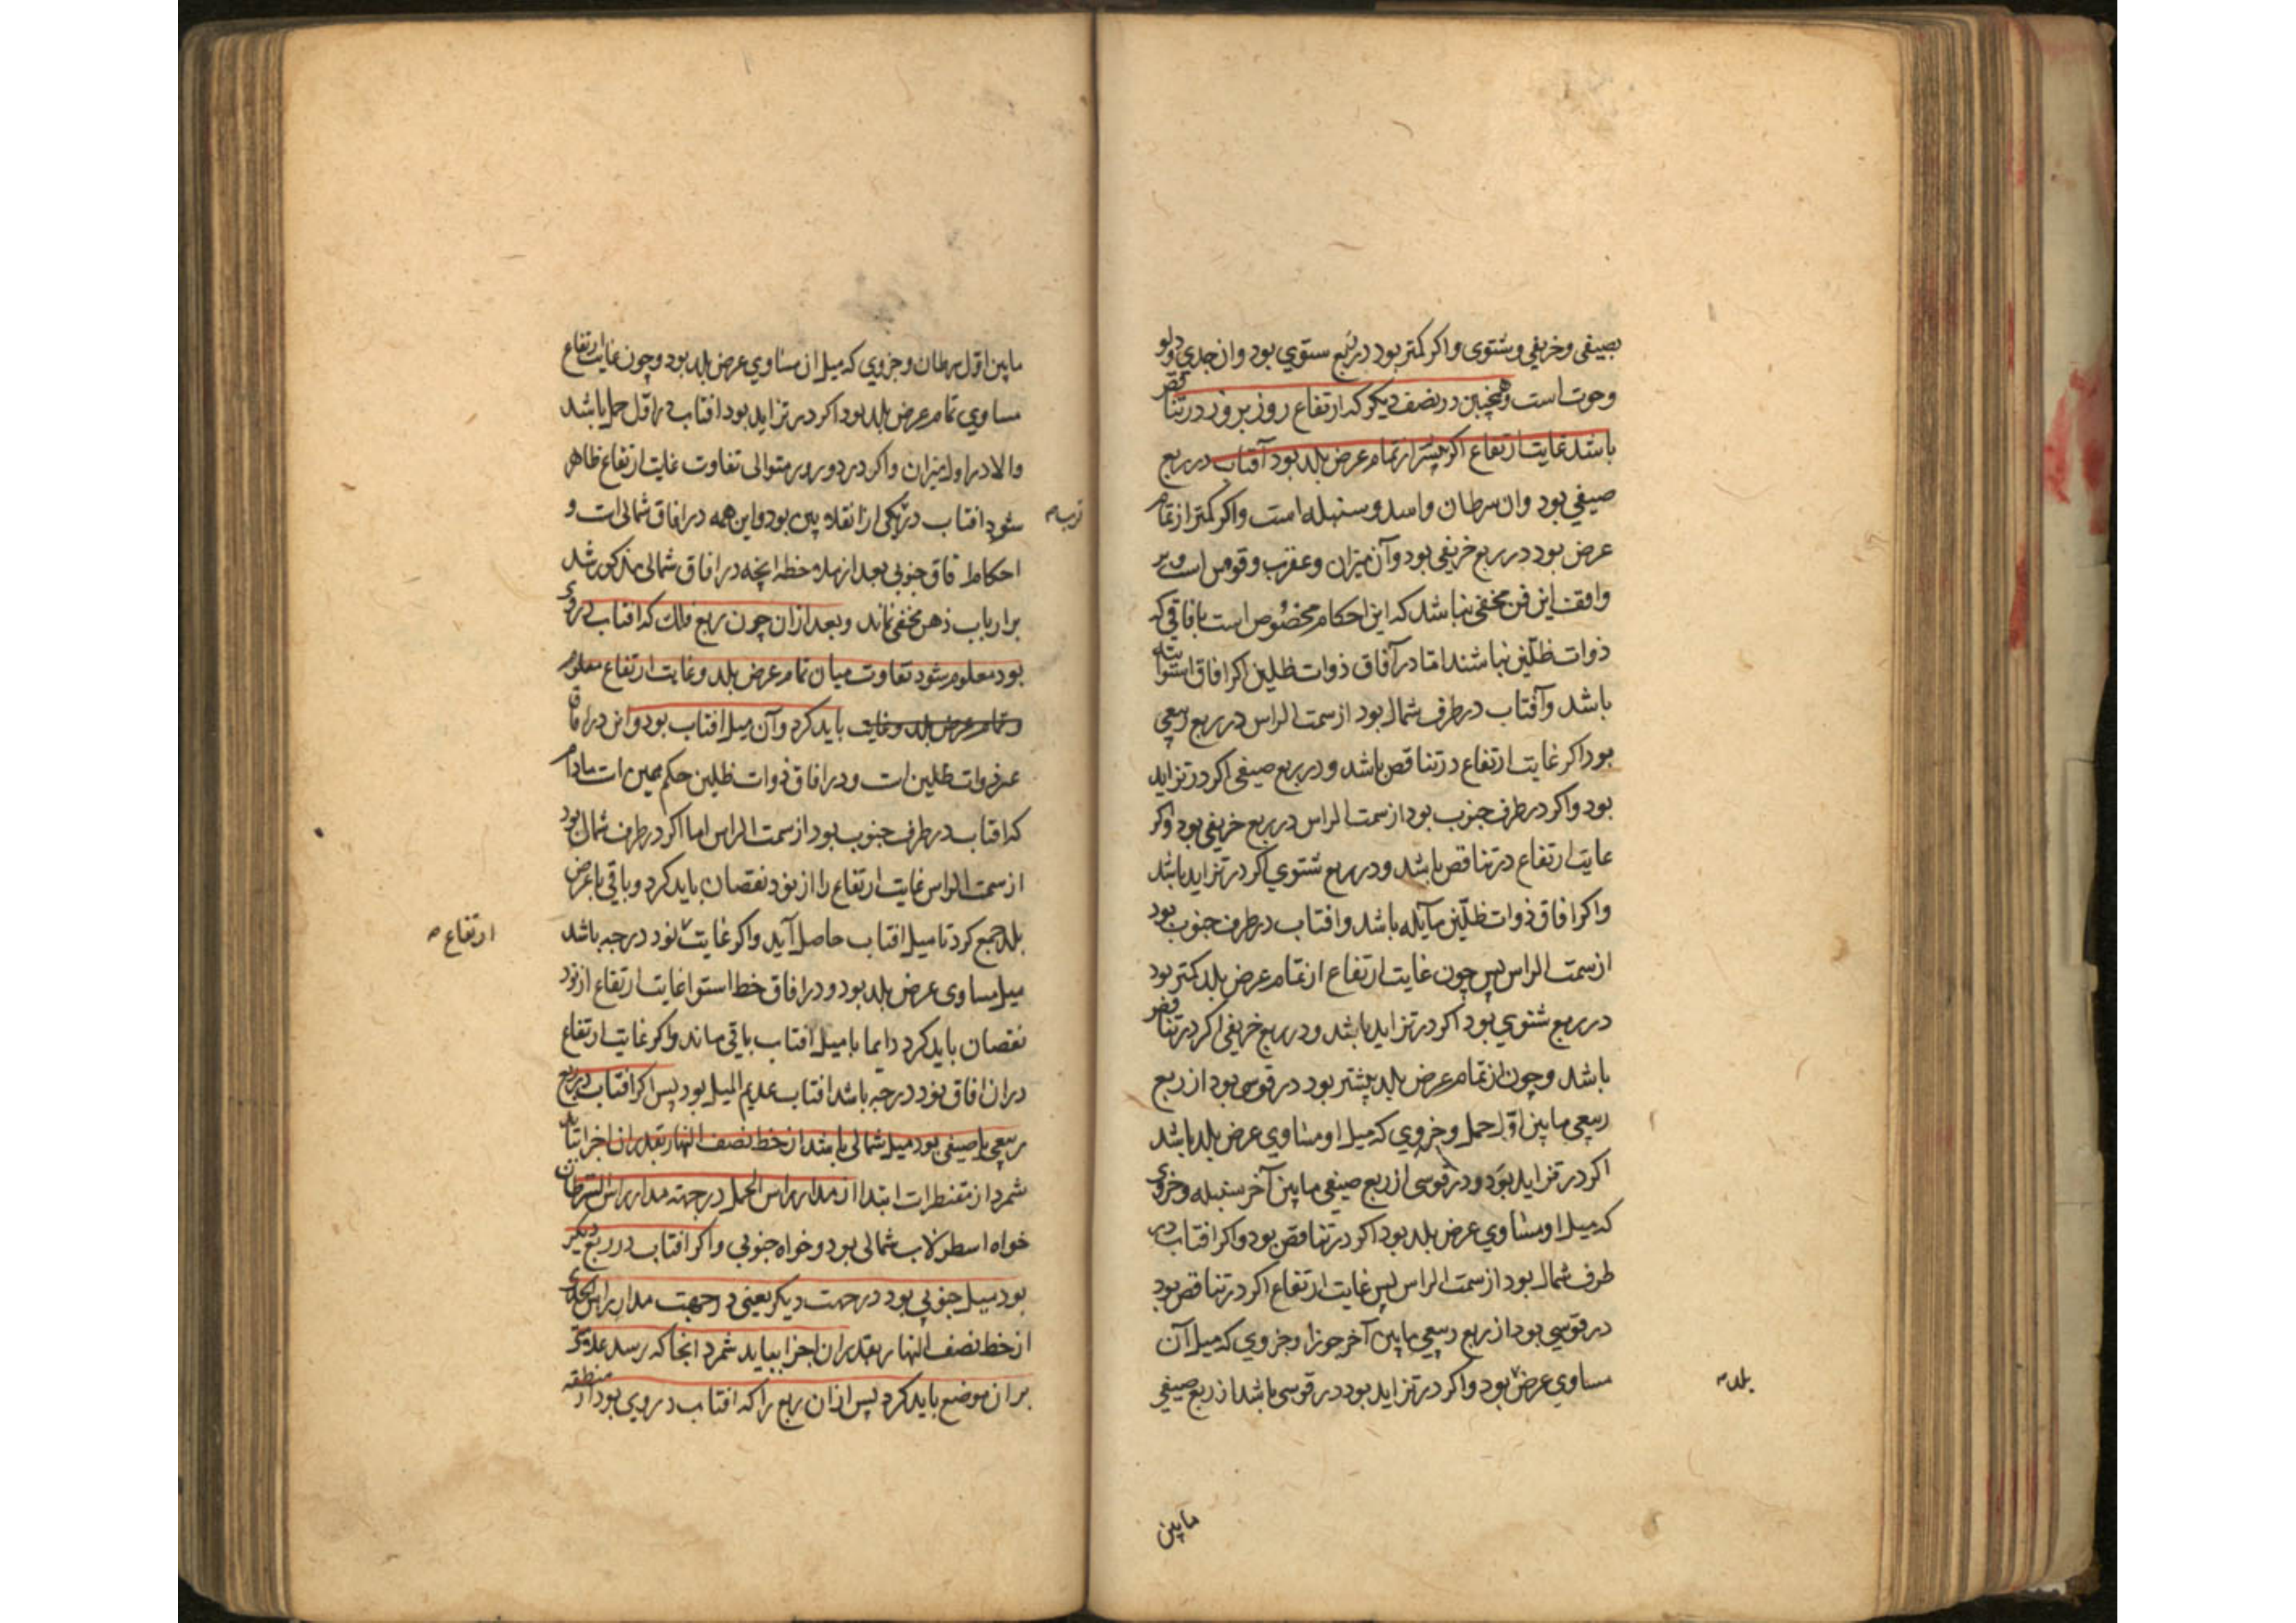 بصیفی وخریفی وشتوی واکر کمتر بود در ربع ستوی بود وان جدی ودلو
وحوت است وهمچنین در نصف دیکر که ارتفاع روز بروز در تناقص
باشد غایت ارتفاع اکر بیشتر از تمام عرض بلد بود آفتاب در ربع
صیفی بود وان سرطان واسد وسنبله است واکر کمتر از تمام
عرض بود در ربع خریفی بود وآن میزان وعقرب وقوس است وبر
واقف این فن مخفی نباشد که این احکام مخصوص است بافاقی که
ذوات ظلّین نباشند امّا در آفاق ذوات ظلین اکر افاق استوائیه
باشد وآفتاب در طرف شمال بود از سمت الراس در ربع ربیعی
بود اکر غایت ارتفاع در تناقص باشد ودر ربع صیفی اکر در تزاید
بود واکر در طرف جنوب بود از سمت الراس در ربع خریفی بود واکر
غایت ارتفاع در تناقص باشد ودر ربع شتوی اکر در تزاید باشد
واکر افاق ذوات ظلّین مآیله باشد وافتاب در طرف جنوب بود
از سمت الراس پس چون غایت ارتفاع از تمام عرض بلد کمتر بود
در ربع شتوی بود اکر در تزاید باشد ودر ربع خریفی اکر در تناقص
باشد وچون از تمام عرض بلد بیشتر بود در قوسی بود از ربع
ربیعی مابین اوّل حمل وجزوی که میل او مساوی عرض بلد باشد
اکر در تزاید بود ودر قوسی از ربع صیفی مابین آخر سنبله وجزوی
که میل او مساوی عرض بلد بود اکر در تناقص بود واکر افتاب در
طرف شمال بود از سمت الراس پس غایت ارتفاع اکر در تناقص بود
در قوسی بود از ربع ربیعی مابین آخر جوزا وجزوی که میل آن
مساوی عرض بود واکر در تزاید بود در قوسی باشد از ربع صیفی
بلد
مابین
مابین اوّل سرطان وجزوی که میل ان مساوی عرض بلد بود وچون غایت ارتفاع
مساوی تمام عرض بلد بود اکر در تزاید بود افتاب در اوّل حمل باشد
والا در اول میزان واکر در دو روز متوالی تفاوت غایت ارتفاع ظاهر
شود افتاب در یکی از انقلابین بود واین همه در افاق شمالی است و
احکام افاق جنوبی بعد از ملاحظه انچه در افاق شمالی مذکور شد
بر ارباب ذهن مخفی نماند وبعد ازان چون ربع فلک که افتاب دروی
بود معلوم شود تفاوت میان تمام عرض بلد وغایت ارتفاع معلوم
وتمام عرض بلد وغایت باید کرد وآن میل افتاب بود واین در افاق
غیر ذوات ظلین است ودر افاق ذوات ظلین حکم همین است مادام
که افتاب در طرف جنوب بود از سمت الراس اما اکر در طرف شمال بود
از سمت الراس غایت ارتفاع را از نود نقصان باید کرد وباقی با عرض
بلد جمع کرد تا میل افتاب حاصل آید واکر غایت نود درجه باشد
ارتفاع
میل مساوی عرض بلد بود ودر افاق خط استوا غایت ارتفاع از نود
نقصان باید کرد دایما با میل افتاب باقی ماند واکر غایت ارتفاع
دران افاق نود درجه باشد افتاب عدیم المیل بود پس اکر افتاب در ربع
ربیعی یا صیفی بود میل شمالی باشد از خط نصف النهار بقدر ان اجزا باید
شمرد از مقنطرات ابتدا از مدار راس الحمل در جهته مدار راس السرطان
خواه اسطرلاب شمالی بود وخواه جنوبی واکر افتاب در ربع دیکر
بود میل جنوبی بود در جهت دیکر یعنی در جهت مدار راس الجدی
از خط نصف النهار بقدر ان اجزا بباید شمرد انجا که رسد علامتی
بر ان موضع باید کرد پس ازان ربع را که افتاب دروی بود از منطقه